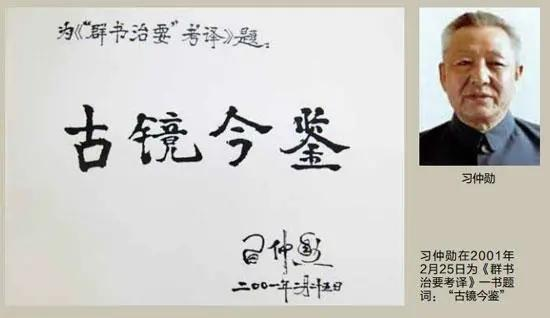 为《“群书治要”考译》题：
古镜今鉴
习仲勋
二〇〇一年二月二十五日
习仲勋
习仲勋在2001年
2月25日为《群书
治要考译》一书题
词：“古镜今鉴”